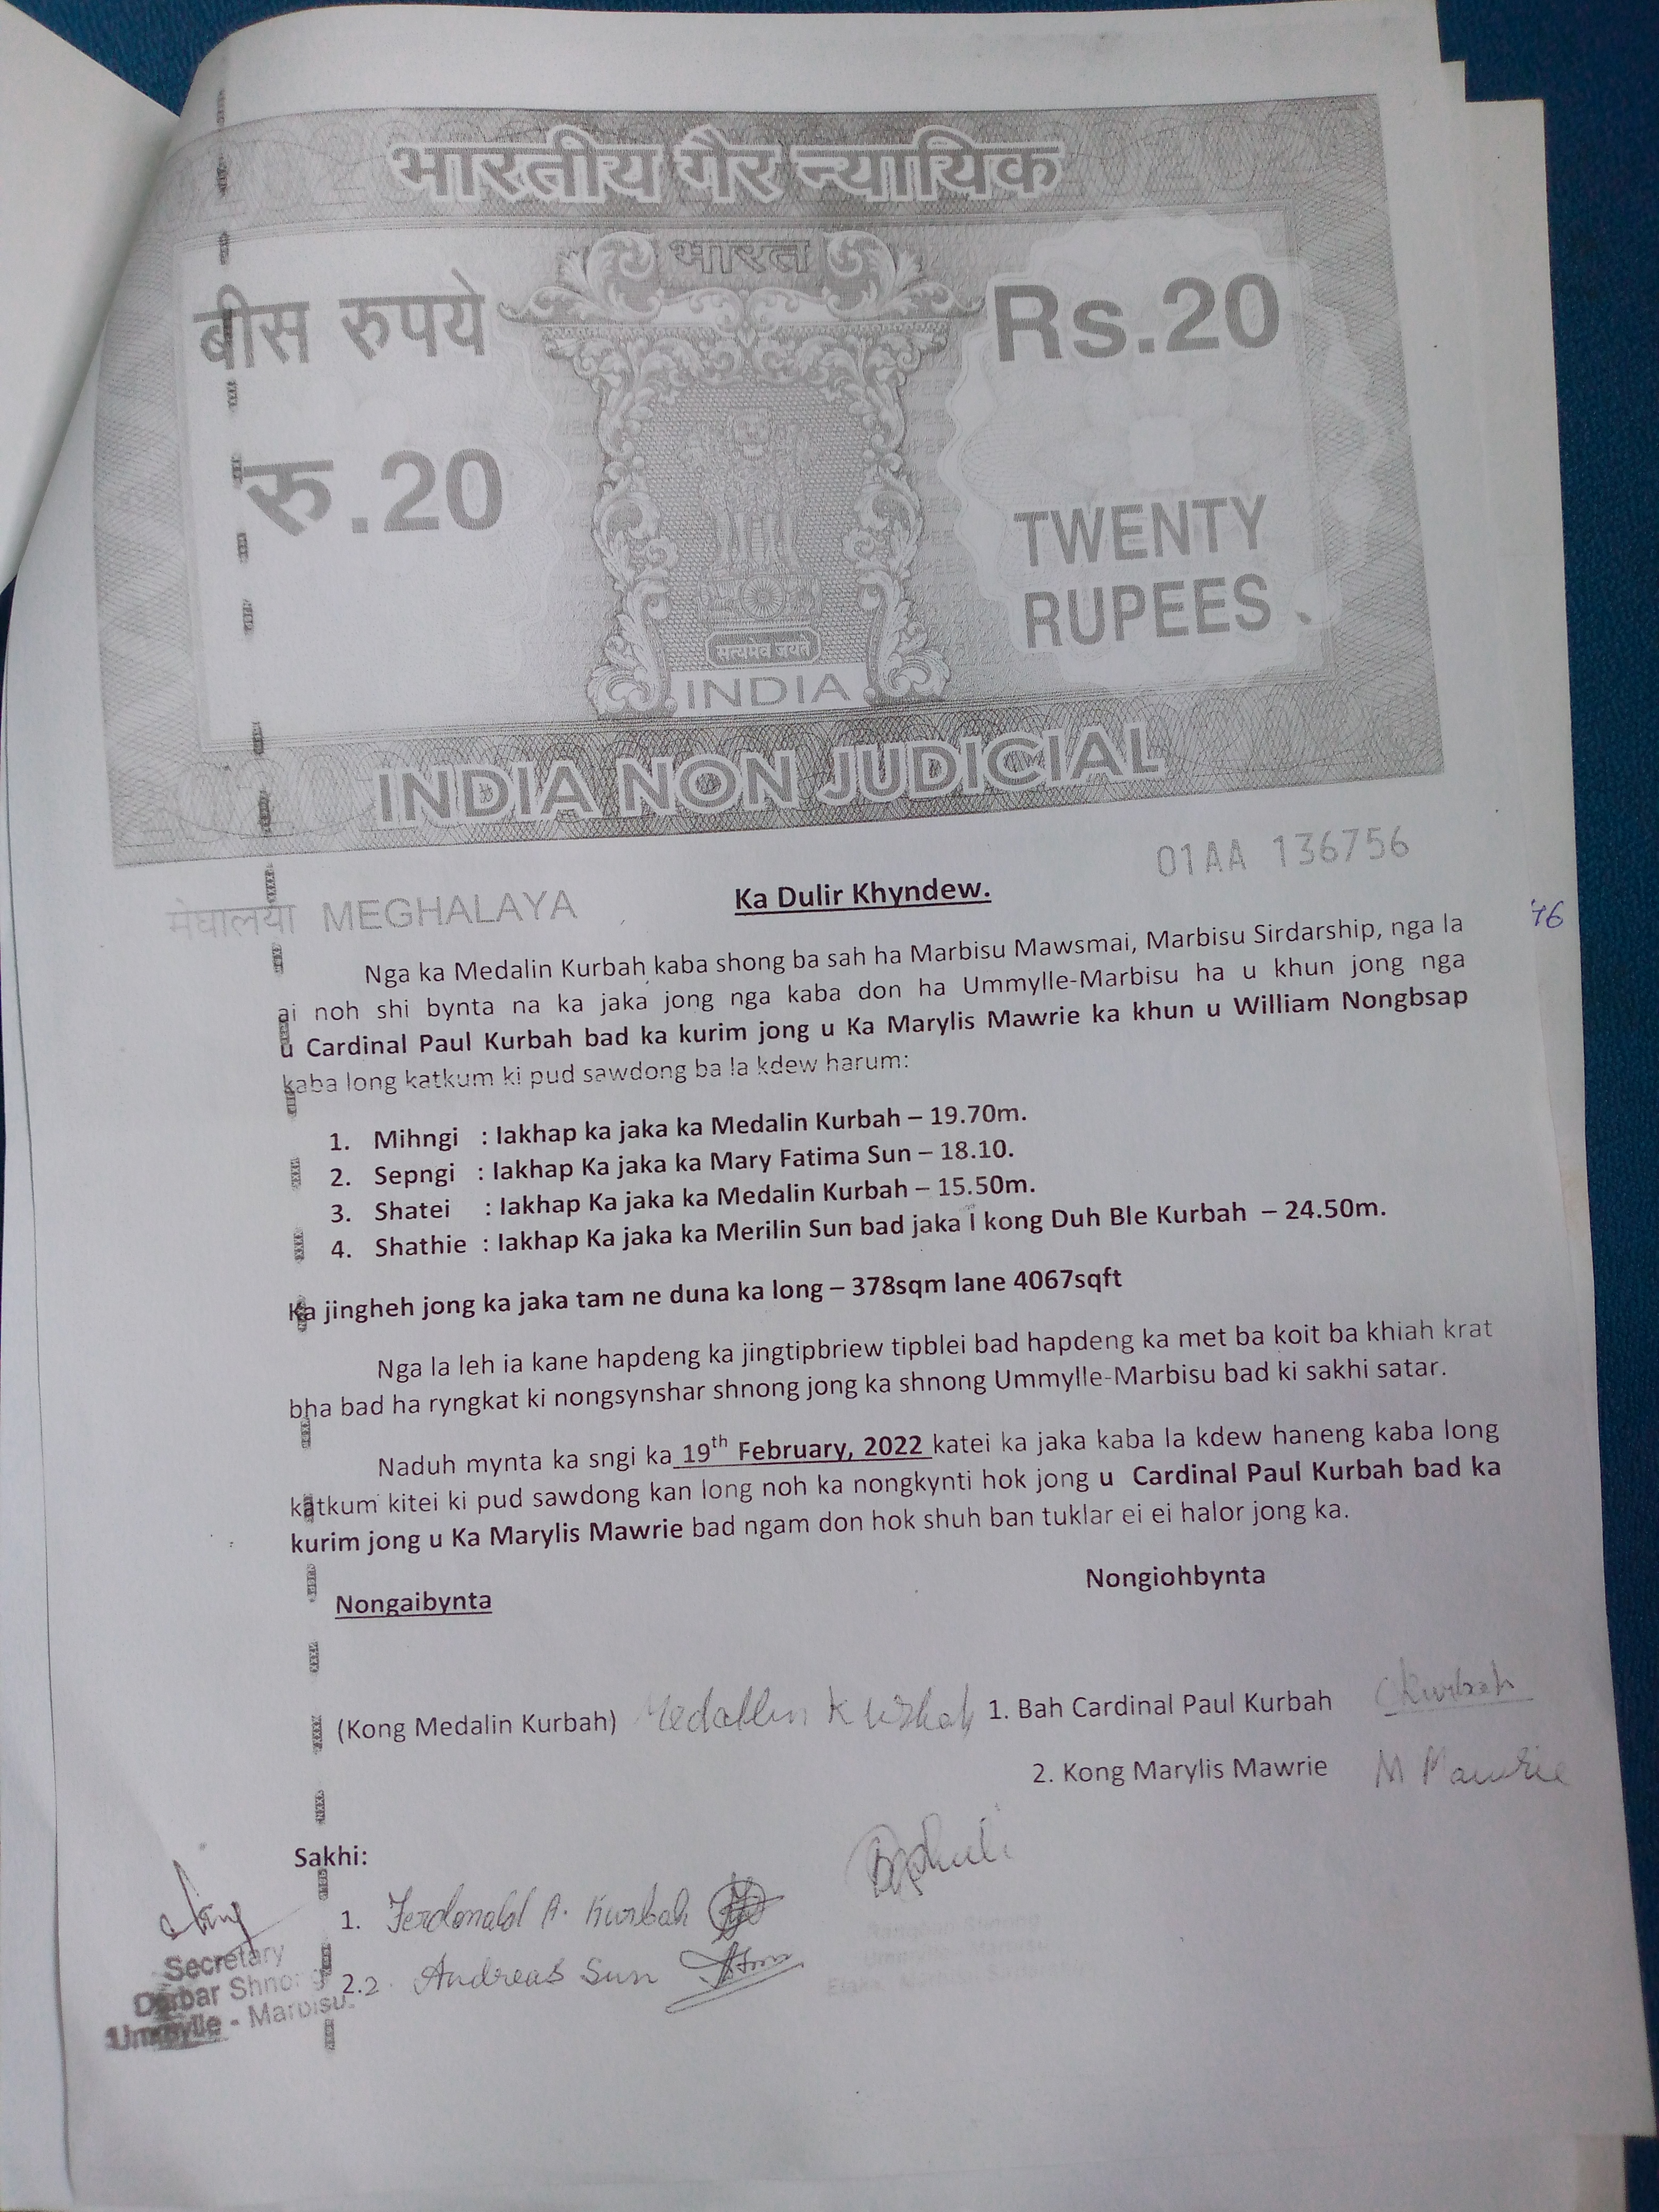 भारतीय गैर न्यायिक
भारत
बीस रुपये
Rs.20
रु.20
TWENTY
RUPEES
सत्यमेव जयते
INDIA
INDIA NON JUDICIAL
01AA 136756
मेघालया MEGHALAYA
Ka Dulir Khyndew.
76
Nga ka Medalin Kurbah kaba shong ba sah ha Marbisu Mawsmai, Marbisu Sirdarship, nga la
ai noh shi bynta na ka jaka jong nga kaba don ha Ummylle-Marbisu ha u khun jong nga
u Cardinal Paul Kurbah bad ka kurim jong u Ka Marylis Mawrie ka khun u William Nongbsap
kaba long katkum ki pud sawdong ba la kdew harum:
1. Mihngi : Iakhap ka jaka ka Medalin Kurbah – 19.70m.
2. Sepngi : Iakhap Ka jaka ka Mary Fatima Sun – 18.10.
3. Shatei : Iakhap Ka jaka ka Medalin Kurbah – 15.50m.
4. Shathie : Iakhap Ka jaka ka Merilin Sun bad jaka I kong Duh Ble Kurbah – 24.50m.
Ka jingheh jong ka jaka tam ne duna ka long – 378sqm lane 4067sqft
Nga la leh ia kane hapdeng ka jingtipbriew tipblei bad hapdeng ka met ba koit ba khiah krat
bha bad ha ryngkat ki nongsynshar shnong jong ka shnong Ummylle-Marbisu bad ki sakhi satar.
Naduh mynta ka sngi ka 19th February, 2022 katei ka jaka kaba la kdew haneng kaba long
katkum kitei ki pud sawdong kan long noh ka nongkynti hok jong u Cardinal Paul Kurbah bad ka
kurim jong u Ka Marylis Mawrie bad ngam don hok shuh ban tuklar ei ei halor jong ka.
Nongaibynta
Nongiohbynta
(Kong Medalin Kurbah) Medallin Kurbah
1. Bah Cardinal Paul Kurbah CKurbah
2. Kong Marylis Mawrie M Mawrie
Sakhi:
1. Ferdonald A. Kurbah
2.2. Andreas Sun
Secretary
Dorbar Shnong
Ummylle - Marbisu.